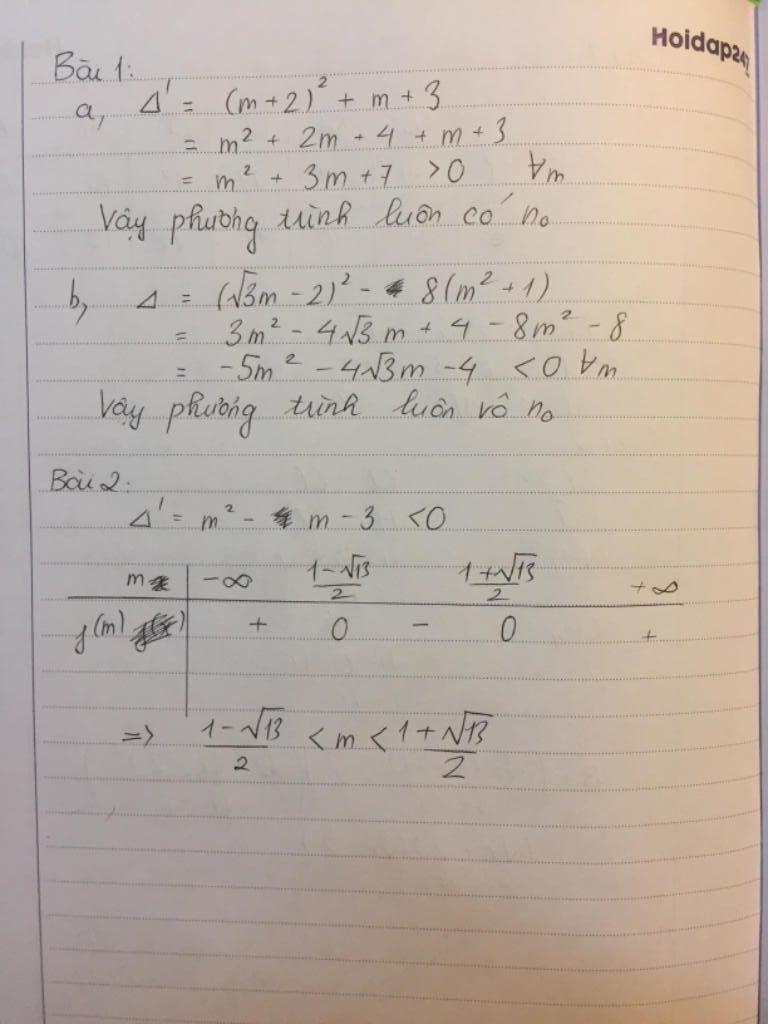 Hoidap247
Bài 1:
a, Δ' = (m+2)² + m + 3
= m² + 2m + 4 + m + 3
= m² + 3m + 7 >0 ∀m
Vậy phương trình luôn có n₀
b, Δ = (√3m - 2)² - 8(m² + 1)
= 3m² - 4√3 m + 4 - 8m² - 8
= -5m² - 4√3m - 4 <0 ∀m
Vậy phương trình luôn vô n₀
Bài 2:
Δ' = m² - m - 3 <0
m -∞ (1-√13)/2 (1+√13)/2 +∞
f(m) + 0 - 0 +
=> (1-√13)/2 < m < (1+√13)/2